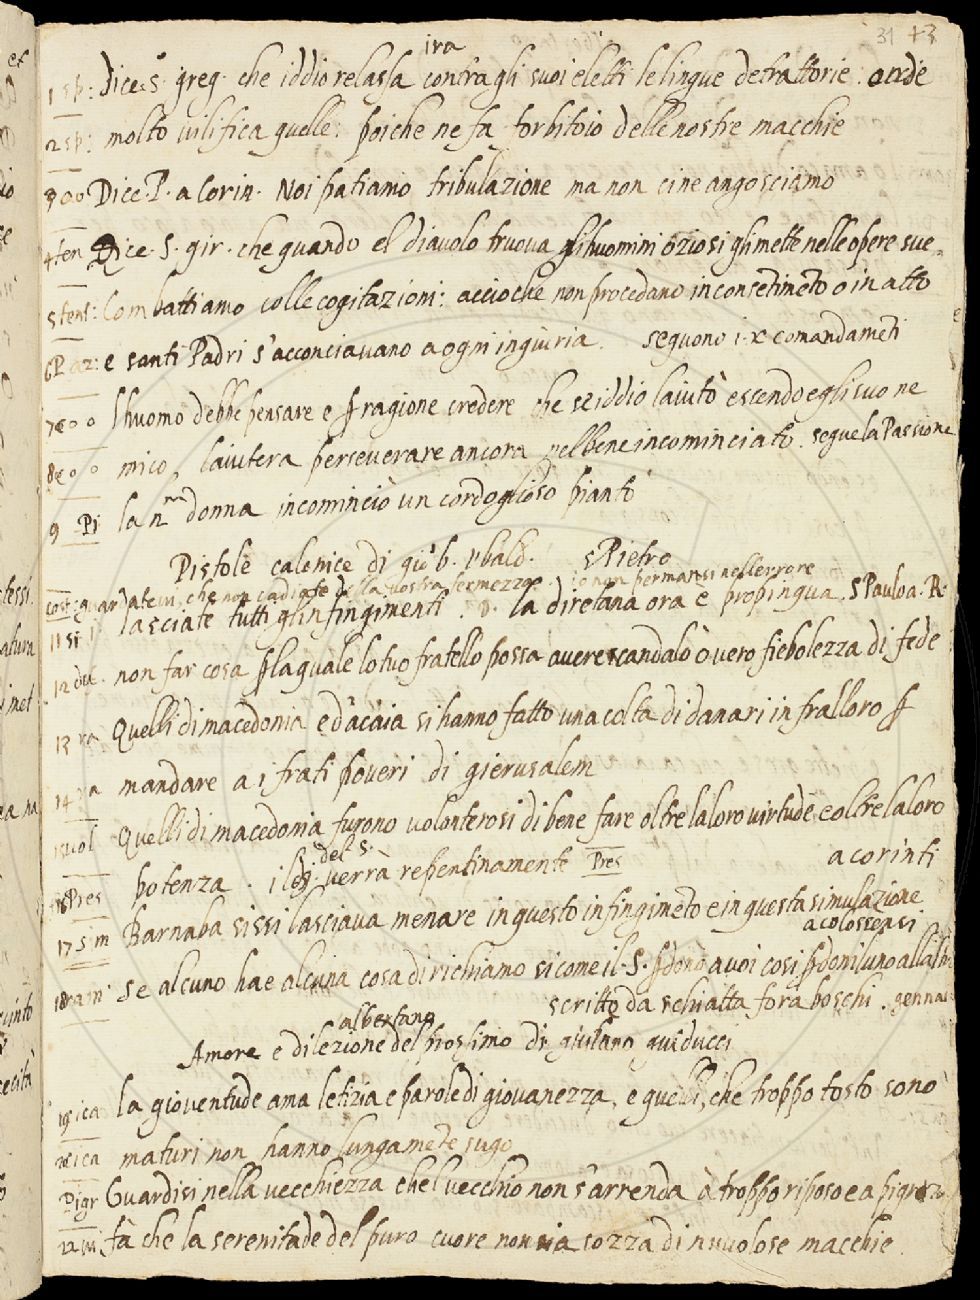 31 43
ira
1 sp: Dice. S. greg. che iddio relassa contra gli suoi eletti le lingue detrattorie. onde
2 sp: molto vilifica quelle: poiche ne fa forbitoio delle nostre macchie
Dice. P. a Corin. Noi patiamo tribulazione ma non ci ne angosciamo
4 ten Dice. S. gir. che quando el diavolo truova gl'huomini oziosi gli mette nelle opere sue.
5 tent: Combattiamo colle cogitazioni: accioche non procedano in consetimeto o in atto
6 Paz: e santi Padri s'acconciavano a ogni ingiuria. seguono i. x comandameti
7 lhuomo debbe pensare e p ragione credere che se iddio laiutò essendo egli suo ne
8 mico, laiutera perseverare ancora nel bene incominciato. segue la Passione
9 Pi la nra donna incominciò un cordoglioso pianto
Pistole calonice di gio. b. Vbald. S Pietro
cost: guardatevi, che non cadiate della vostra fermezza. permansi nell'errore
11 si lasciate tutti gl'infingimenti. la diretana ora e propinqua, S Paulo a. R:
12 non far cosa p la quale lo tuo fratello possa avere scandalo o vero fiebolezza di fede
13 ra Quelli di macedonia e d'acaia si hanno fatto una colta di danari in fralloro p
14 a mandare a i frati poveri di gierusalem
15 vol Quelli di macedonia furono volonterosi di bene fare oltre la loro virtude e oltre la loro
del S.
16 Pres potenza. il verrà repentinamente Pres a corinti
17 sim Barnaba si ssi lasciava menare in questo infingimeto e in questa simulazione
a colossensi
18 ram se alcuno hae alcuna cosa di richiamo si come il. S. pdonò a voi cosi pdoni luno all
scritto da schiatta fora boschi. genna
albertano
Amore e dilezione del prossimo di giulano guiducci
19 ica la gioventude ama letizia e parole di giovanezza, e quelli, che troppo tosto sono
20 ica maturi non hanno lungamete sugo
Pigr Guardisi nella vecchiezza che l vecchio non s'arrenda à troppo riposo e a pigrezza
22 fà che la serenitade del puro cuore non sia sozza di nuvolose macchie.